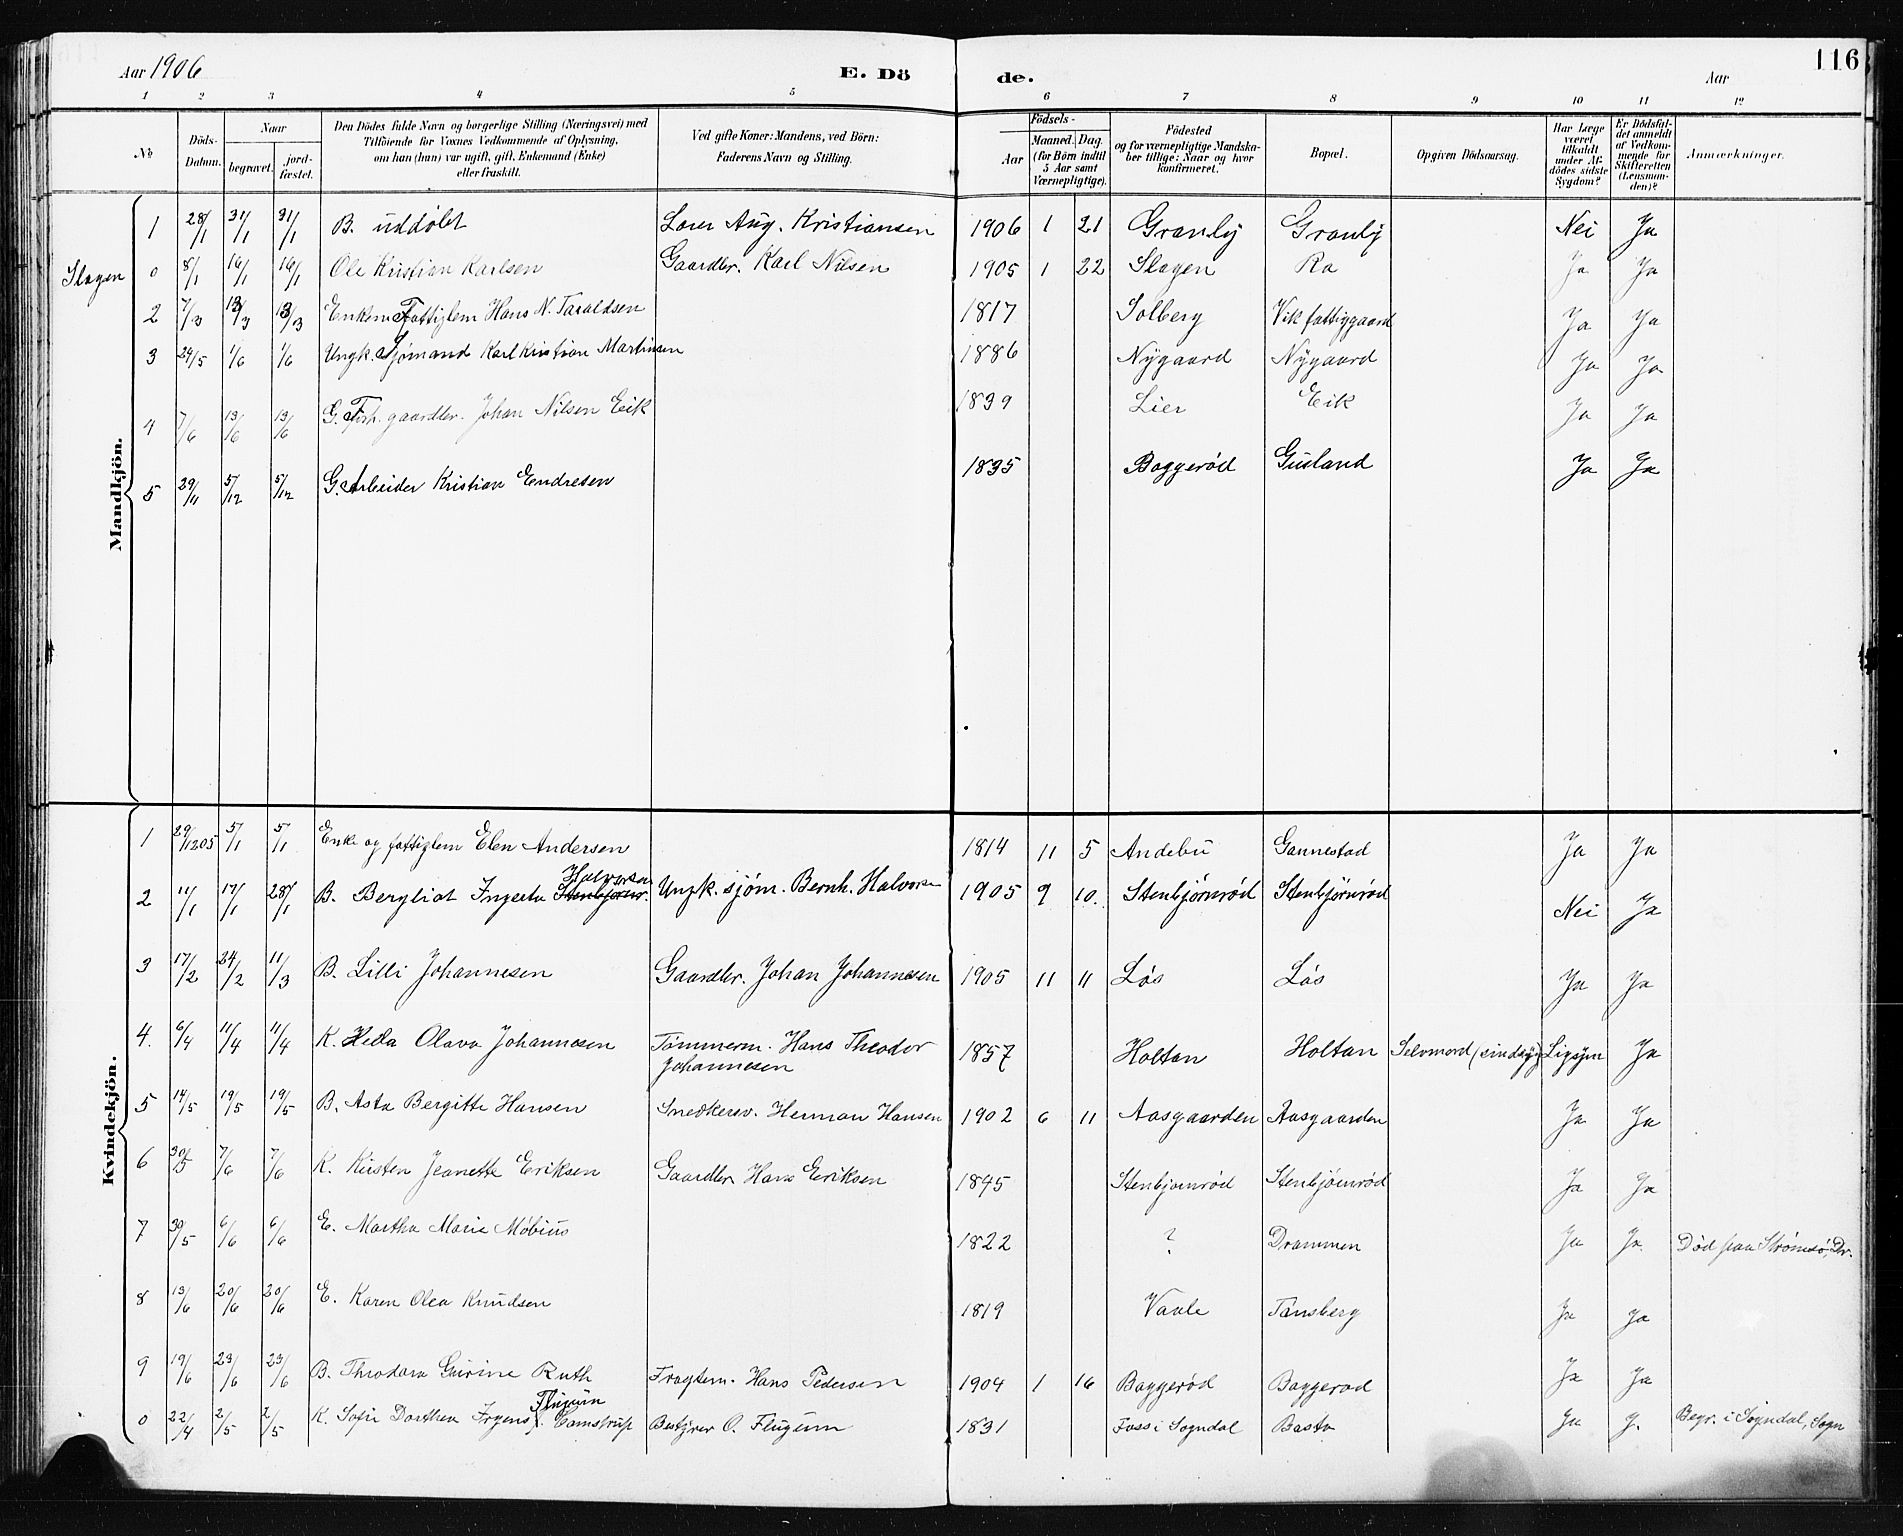 Aar 1906 E. Dö de. Aar 116
1 2 3 4 5 6 7 8 9 10 11 12
No
Döds-Datum.
Naar
begravet.
jord-fæstet.
Den Dödes fulde Navn og borgerlige Stilling (Næringsvei) med
Tilföiende for Voxnes Vedkommende af Oplysning,
om han (hun) var ugift, gift, Enkemand (Enke)
eller fraskilt.
Ved gifte Koner: Mandens, ved Börn:
Faderens Navn og Stilling.
Födsels-
Aar
Maaned. Dag.
(for Börn indtil
5 Aar samt
Værnepligtige).
Födested
og for værnepligtige Mandska-
ber tillige: Naar og hvor
konfirmeret.
Bopæl.
Opgiven Dödsaarsag.
Har Læge
været
tilkaldt
under Af-
dödes sidste
Sygdom?
Er Dödsfal-
det anmeldt
af Vedkom-
mende for
Skifteretten
(Lensman-
den)?
Anmærkninger.
Mandkjön.
1 28/1 31/1 31/1 B. uddøbt Lorer Aug. Kristiansen 1906 1 21 Granly Granly Nei Ja
Slagen 0 8/1 16/1 16/1 Ole Kristian Karlsen Gaardbr. Karl Nilsen 1905 1 22 Slagen Ra Ja Ja
2 7/3 13/3 13/3 Enkem. Fattiglem Hans N. Taraldsen 1817 Solberg Vik fattiggaard Ja Ja
3 24/5 1/6 1/6 Ungk. Sjømand Karl Kristian Martinsen 1886 Nygaard Nygaard Ja Ja
4 7/6 13/6 13/6 G. Forh. gaardbr. Johan Nilsen Eik 1839 Lier Eik Ja Ja
5 29/11 5/12 5/12 G. Arbeider Kristian Endresen 1835 Baggerød Gusland Ja Ja
Kvindekjön.
1 29/12 05 5/1 5/1 Enke og fattiglem Elen Andersen 1814 11 5 Andebu Gannestad Ja Ja
Halvorsen
2 11/1 17/1 28/1 B. Bergliot Ingerta Ungk. sjøm. Bernh. Halvorsen 1905 9 10. Stenbjørnrød Stenbjørnrød Nei Ja
3 17/2 24/2 11/3 B. Lilli Johannesen Gaardbr. Johan Johannesen 1905 11 11 Løs Løs Ja Ja
4. 6/4 11/4 11/4 K. Helia Olava Johannesen Tømmerm. Hans Theodor
Johannesen 1857 Holtan Holtan Selvmord (sindsyg) Ligsyn Ja
5 14/5 19/5 19/5 B. Asta Bergitte Hansen Snedkersv. Herman Hansen 1902 6 11 Aasgaarden Aasgaarden Ja Ja
6 30/5 7/6 7/6 K. Kirsten Jeanette Eriksen Gaardbr. Hans Eriksen 1845 Stenbjørnrød Stenbjørnrød Ja Ja
7 30/5 6/6 6/6 E. Martha Marie Møbius 1822 ? Drammen Ja Ja Død paa Strømsø, Dr.
8 13/6 20/6 20/6 E. Karen Olea Knudsen 1819 Vaale Tønsberg Ja Ja
9 19/6 23/6 23/6 B. Theodora Gurine Ruth Fragtem. Hans Pedersen 1904 1 16 Baggerød Baggerød Ja Ja
Flugum
0 22/4 2/5 2/5 K. Sofie Dorthea Irgens f. Camstrup Bestyrer O. Flugum 1831 Foss i Sogndal Bastø Ja J. Begr. i Sogndal, Sogn